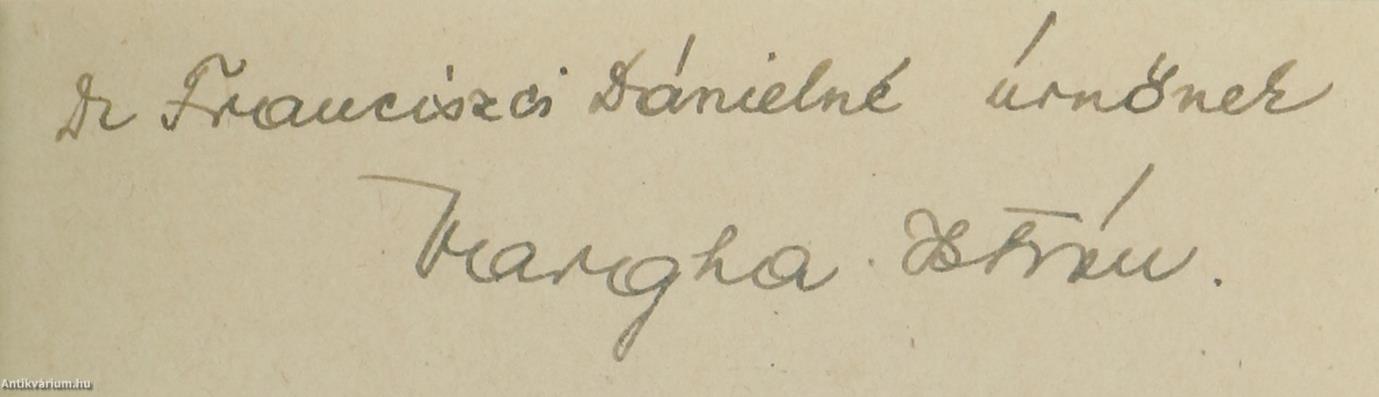 Dr Franciszci Dánielné úrnőnek
Vargha István.
Antikvárium.hu